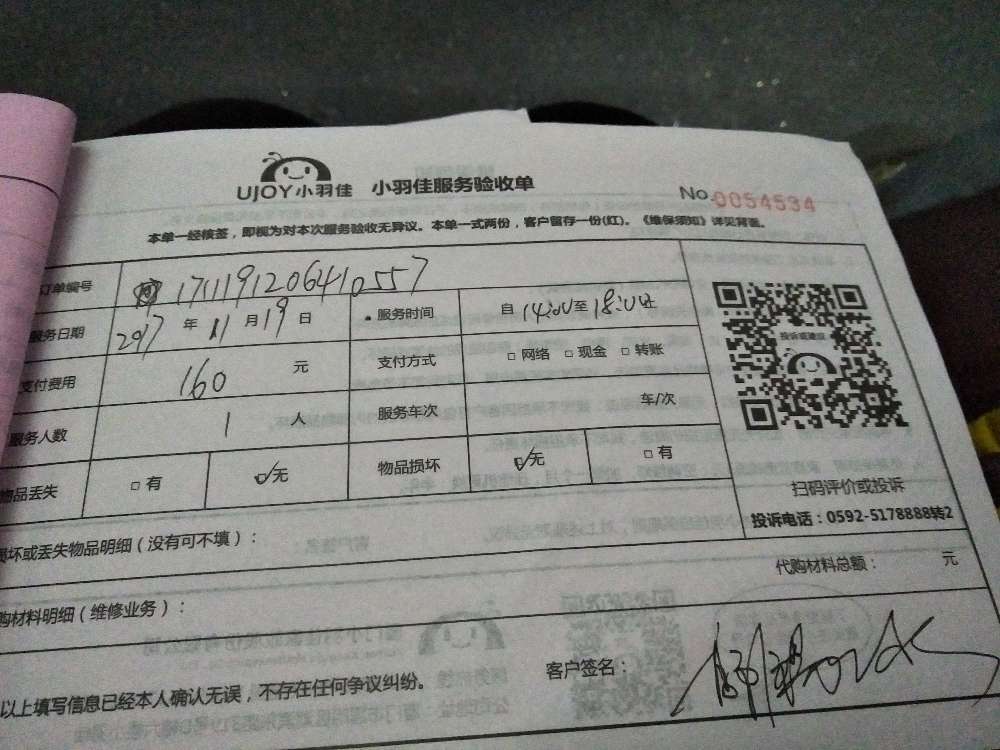 UJOY小羽佳 小羽佳服务验收单 No.0054534
本单一经核签，即视为对本次服务验收无异议。本单一式两份，客户留存一份(红)。《维保须知》详见背面。
订单编号 1711191206410557
服务日期 2017 年 11 月 19 日 服务时间 自 14:00 至 18:00 时
支付费用 160 元 支付方式 □ 网络 □ 现金 □ 转账
服务人数 1 人 服务车次 车/次
物品丢失 □ 有 ☑ 无 物品损坏 ☑ 无 □ 有
投诉或建议
扫码评价或投诉
投诉电话：0592-5178888转2
损坏或丢失物品明细（没有可不填）：
购材料明细（维修业务）： 代购材料总额： 元
以上填写信息已经本人确认无误，不存在任何争议纠纷。 客户签名：